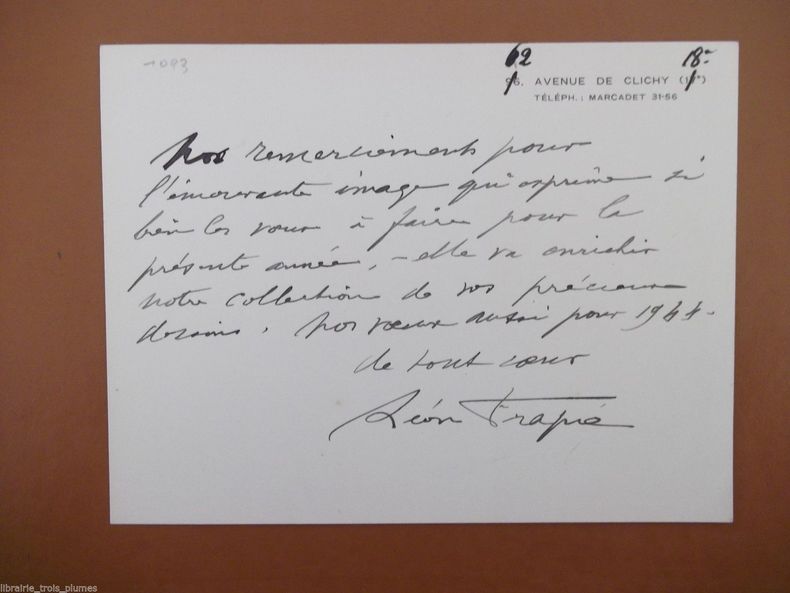 1093
62 18e
96, AVENUE DE CLICHY (17e)
TÉLÉPH. : MARCADET 31-56
Nos remerciements pour
l'émouvante image qui exprime si
bien les vœux à faire pour la
présente année, - elle va enrichir
notre collection de vos précieux
dessins. Nos vœux aussi pour 1944.
de tout cœur
Léon Frapié
librairie_trois_plumes